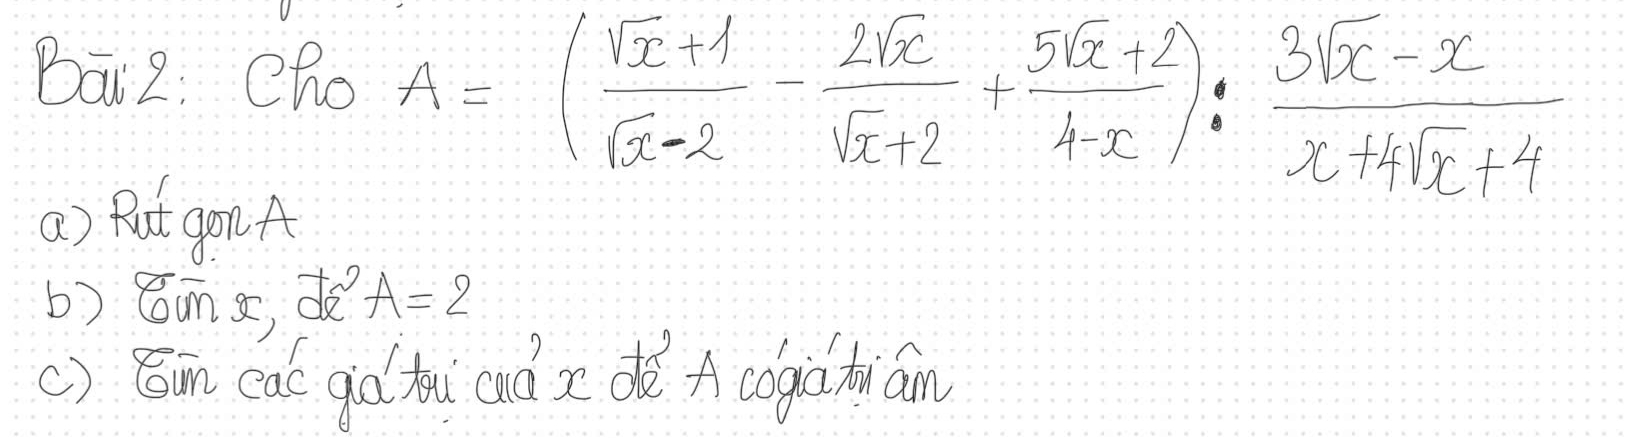 Bài 2: Cho A = ( (√x + 1)/(√x - 2) - (2√x)/(√x + 2) + (5√x + 2)/(4 - x) ) : (3√x - x)/(x + 4√x + 4)
a) Rút gọn A
b) Tìm x, để A = 2
c) Tìm các giá trị của x để A có giá trị âm